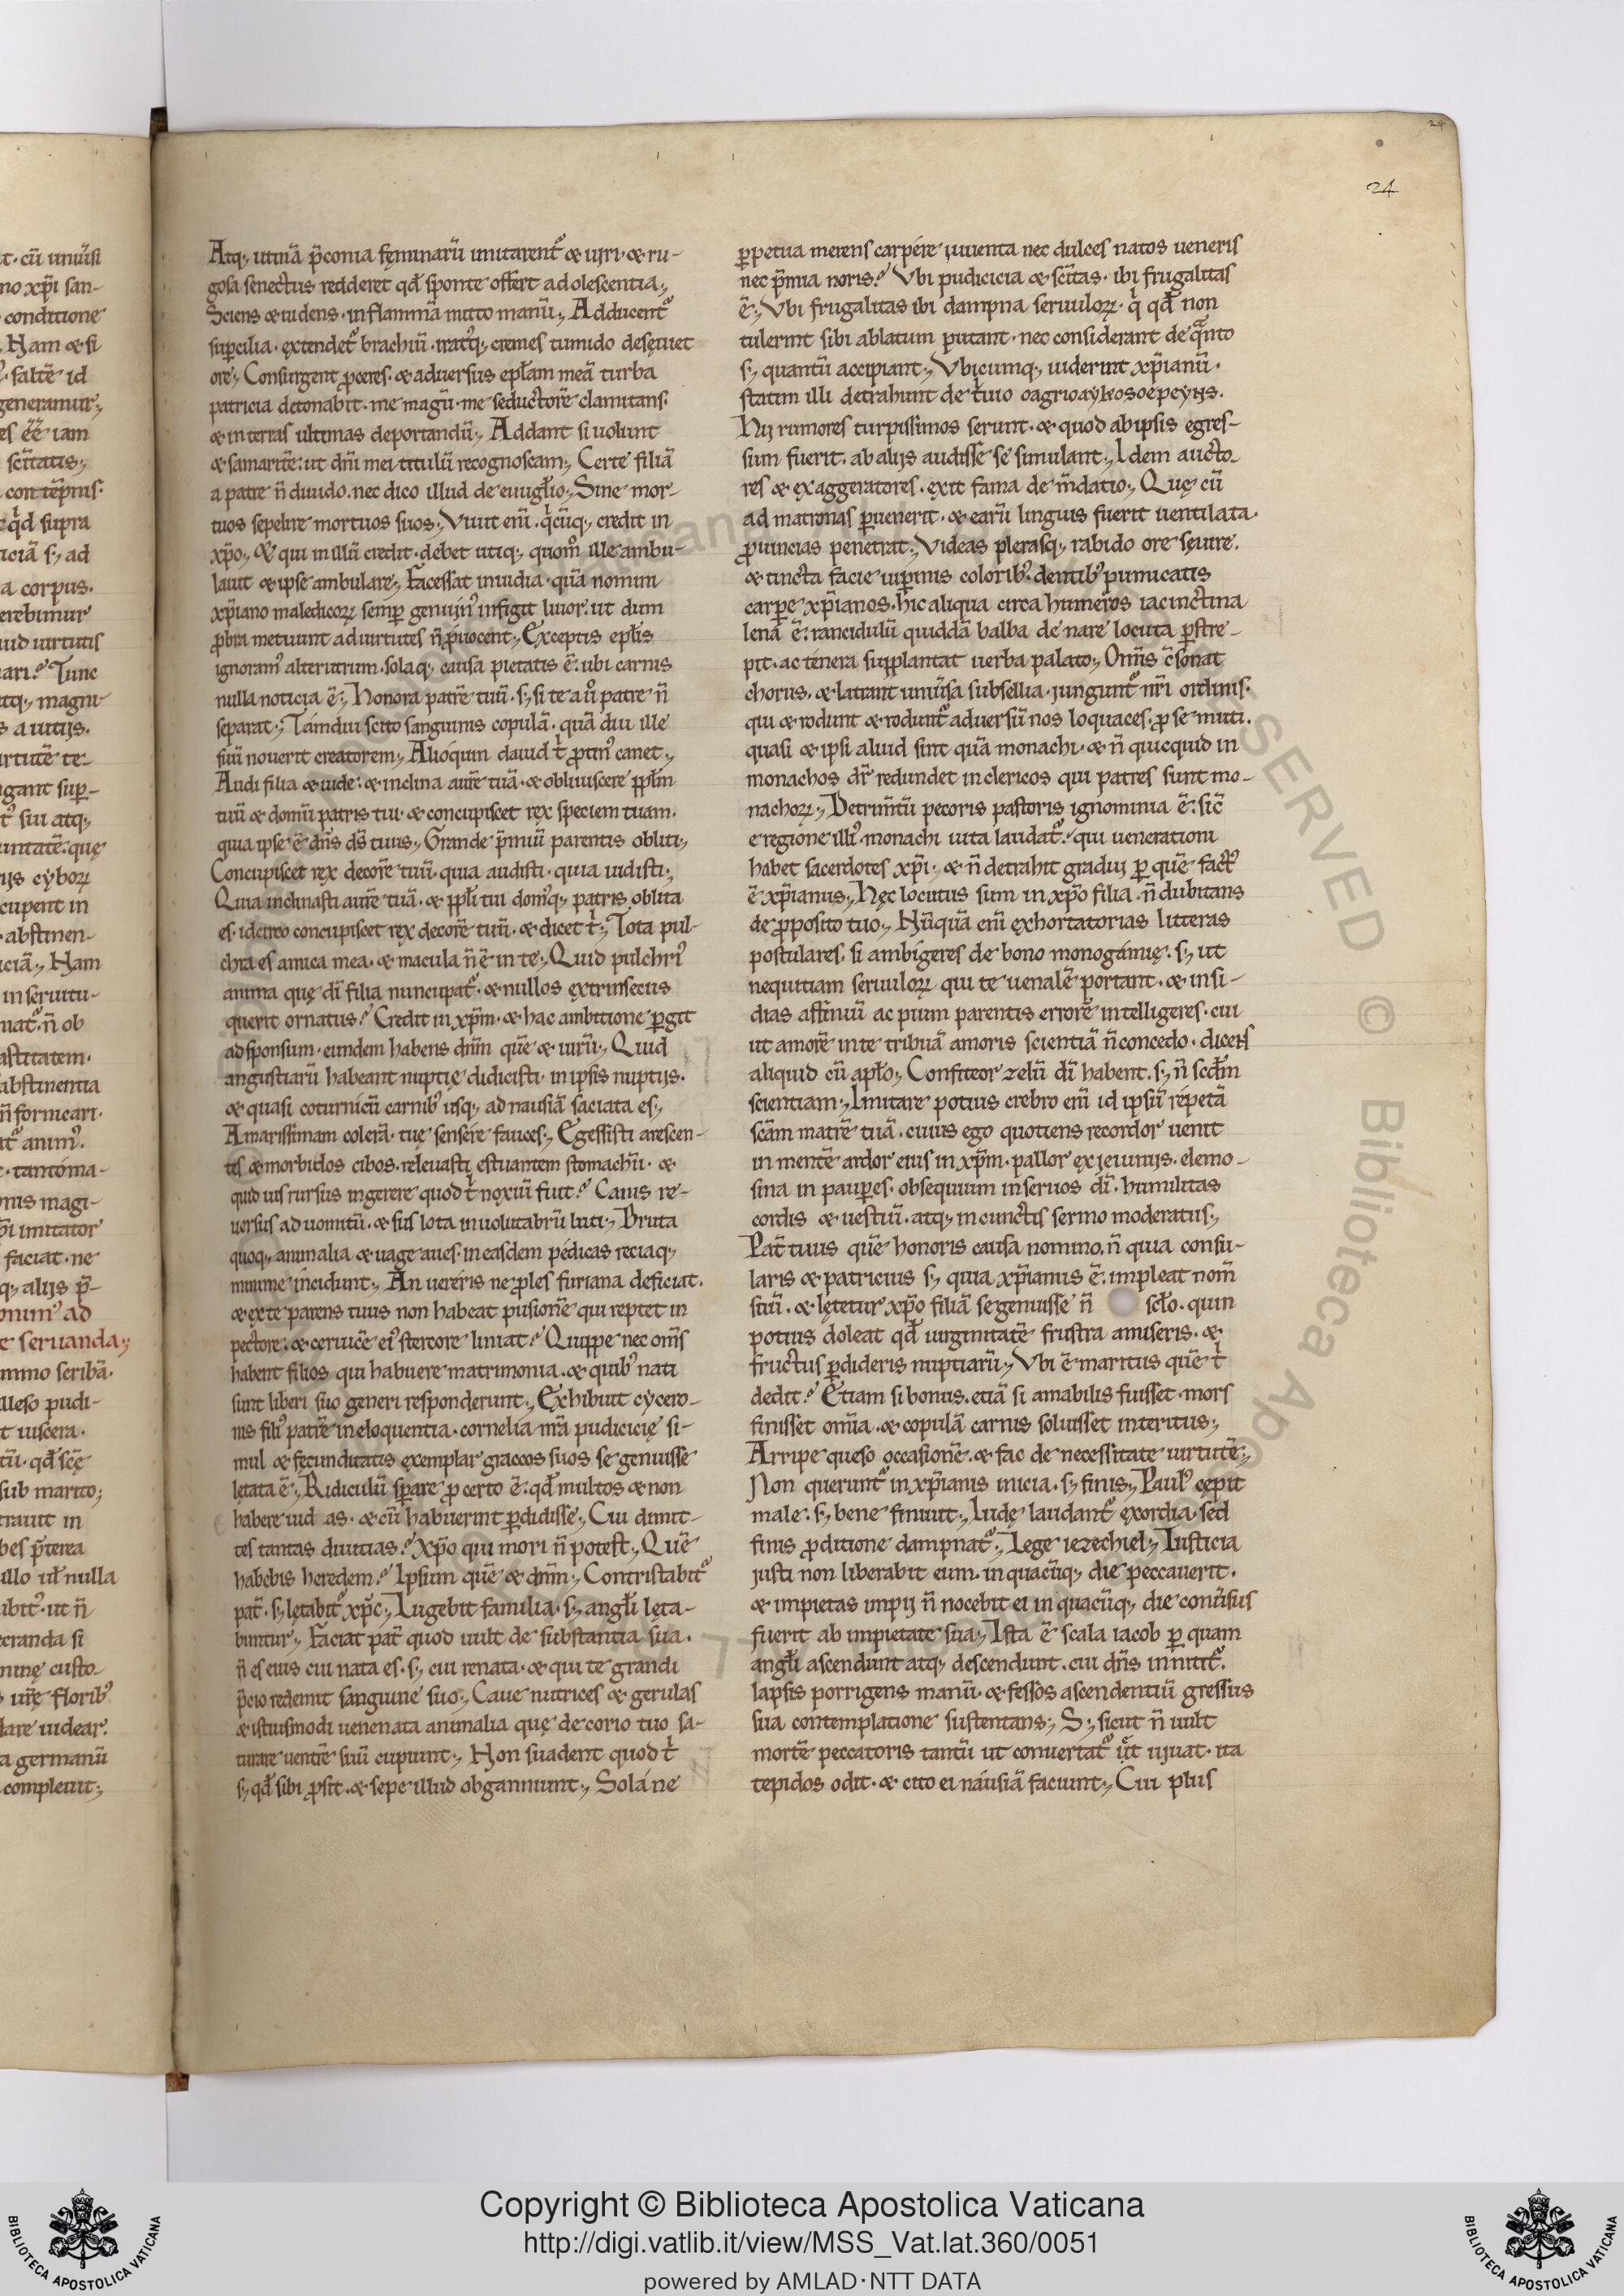 t. cū uniũsi
no xp̄i san-
conditione
Nam & si
saltē id
generamur;
es eē iam
sc̄itatis;
contēpnis.
qđ supra
iciā s; ad
a corpus.
erebimur
uid uirtutis
ari? Tunc
atq; magni-
s a uitijs.
irtutē te-
gant sup-
t sui atq;
untatē. quę
ijs cyboꝝ
cupent in
abstinen-
iciā; Nam
in seruitu-
uat̉. n̄ ob
astitatem.
abstinentia
n̄ fornicari.
nt̉ anim᾽.
t. tantoma-
mis magi-
p̄i imitator
faciat. ne
q; alijs p̄-
onim᾽ ad
e seruanda;
mmo scribā.
lleso pudi-
t uiscera.
tū. qđ scē
sub marito;
traxit in
bes p̄terea
illo id nulla
ibit᾽. ut n̄
ecranda si
minę custo-
urē florib᾽
lare uidear.
a germanū
compleuit;
Atq; utinā p̄conia fęminarū imitarent̉ & uiri. & ru-
gosa senectus redderet qđ sponte offert adolescentia;
Sciens & uidens. in flammā mitto manū; Adducent̉
sup̱cilia. extendet̉ brachiū. irat᾽q; cremes tumido desęuiet
ore; Consurgent ꝓceres. & aduersus epłam meā turba
patricia detonabit. me magū. me seductorē clamitans.
& in terras ultimas deportandū; Addant si uolunt
& samaritē: ut dn̄i mei titulū recognoscam; Certe filiā
a patre n̄ diuido. nec dico illud de euuglio; Sine mor-
tuos sepelire mortuos suos; Viuit eni. qͥcūq; credit in
xp̄o; & qui in illū credit. debet utiq; quom̊ ille ambu-
lauit & ipse ambulare; Facessat inuidia. quā nomini
xp̄iano maledicoꝝ semp̱ genuin᾽ infigit liuor. ut dum
ꝓbra metuunt ad uirtutes n̄ ꝓuocent; Exceptis epłis
ignoram᾽ alterutrum. solaq; causa pietatis ē: ubi carnis
nulla noticia ē; Honora patrē tuū. s; si te a ůo patre n̄
separat; Tamdiu scito sanguinis copulā. quā diu ille
suū nouerit creatorem; Alioquin dauid tͥ ꝓtin᾽ canet;
Audi filia & uide: & inclina aurē tuā. & obliuiscere ppłm
tuū & domū patris tui. & concupiscet rex speciem tuam.
quia ipse ē dn̄s ds̄ tuus; Grande p̄miū parentis obliti;
Concupiscet rex decorē tuū. quia audisti. quia uidisti;
Quia inclinasti aurē tuā. & ppłi tui dom᾽q; patris oblita
es. idcirco concupiscet rex decorē tuū. & dicet tͥ; Tota pul-
chra es amica mea. & macula n̄ ē in te; Quid pulchri᾽
anima quę di̅ filia nuncupat̉. & nullos extrinsecus
querit ornatus? Credit in xp̄m. & hac ambitione p̱git
ad sponsum. eundem habens dn̄m quē & uirū; Quid
angustiarū habeant nuptię didicisti. in ipsis nuptijs.
& quasi coturnicū carnib᾽ usq; ad nausiā saciata es;
Amarissimam colerā. tuę sensere fauces; Egessisti arescen-
tes & morbidos cibos. releuasti estuantem stomachū. &
quid uis rursus ingerere quod tͥ noxiū fuit? Canis re-
uersus ad uomitū. & sus lota in uolutabrū luti; Bruta
quoq; animalia & uage aues. in easdem pédicas reciaq;
minime incidunt; An uereris ne ꝓles furiana deficiat.
& ex te parens tuus non habeat pusionē qui reptet in
pectore. & ceruicē ei᾽ stercore liniat? Quippe nec om̄s
habent filios qui habuere matrimonia. & quib᾽ nati
sunt liberi suo generi responderunt; Exhibuit cycero-
nis fili᾽ patrē in eloquentia. cornelia mr̄a pudicicię si-
mul & fęcunditatis exemplar graccos suos se genuisse
lętata ē; Ridiculū sp̱are ꝓ certo ē. qđ multos & non
habere uid as. & cū habuerint p̱didisse; Cui dimit-
tes tantas diuitias? xp̄o qui mori n̄ potest; Quē
habebis heredem? Ipsum quē & dn̄m; Contristabit̉
pat̄. s; lętabit̉ xp̄c; Lugebit familia. s; angłi lęta-
buntur; Faciat pat̄ quod uult de substantia sua.
n̄ es eius cui nata es. s; cui renata. & qui te grandi
p̄cio redemit sanguine suo; Caue nutrices & gerulas
& istiusmodi uenenata animalia quę de corio tuo sa-
turare uentrē suū cupiunt; Non suadent quod tͥ
s; qđ sibi ꝓsit. & sepe illud obganniunt; Solá ne
24
p̱petua merens carpére iuuenta nec dulces natos ueneris
nec p̄mia noris? Vbi pudicicia & sc̄itas. ibi frugalitas
ē; Vbi frugalitas ibi dampna seruuloꝝ. qͥ qđ non
tulerint sibi ablatum putant. nec considerant de qͣnto
s; quantū accipiant; Vbicumq; uiderint xp̄ianū.
statim illi detrahunt de tͥuio oagrιoaykosoepeyνs.
Hij rumores turpissimos serunt. & quod ab ipsis egres-
sum fuerit. ab alijs audisse se simulant; Idem aucto-
res & exaggeratores. exit fama de m̄datio; Quę cū
ad matronas p̱uenerit. & earū linguis fuerit uentilata.
ꝓuincias penetrat; Videas plerasq; rabido ore sęuire.
& tincta facie uip̱inis coloribus. dentib᾽ pumicatis
carpe xp̄ianos. hic aliqua circa humeros iacinctina
lena ē: rancidulū quiddā balba de nare locuta p̱stre-
pit. ac tenera supplantat uerba palato; Omīs c̄sonat
chorus. & latrant uniũsa subsellia. jungunt̉ nr̄i ordinis.
qui & rodunt & rodunt̉ aduersū nos loquaces. ꝓ se muti.
quasi & ipsi aliud sint quā monachi. & n̄ quicquid in
monachos dr̄ redundet in clericos qui patres sunt mo-
nachoꝝ; Detrim̄tū pecoris pastoris ignominia ē: sic̄
e regione illi᾽ monachi uita laudat̉. qui uenerationi
habet sacerdotes xp̄i. & n̄ detrahit gradui p̱ quē fact᾽
ē xp̄ianus; Nęc locutus sum in xp̄o filia. n̄ dubitans
de ꝓposito tuo; Nūquā eni exhortatorias litteras
postulares. si ambigeres de bono monogámię. s; ut
nequitiam seruuloꝝ qui te uenalē portant. & insi-
dias affiniū ac pium parentis errorē intelligeres. cui
ut amorē in te tribuā amoris scientiā n̄ concedo. dicens
aliquid cū apło; Confiteor zelū di̅ habent. s; n̄ scđm
scientiam; Imitare potius crebro eni id ipsū repetā
scām matrē tuā. cuius ego quotiens recordor uenit
in mentē ardor eius in xp̄m. pallor ex jeiunijs. elemo-
sina in paup̱es. obsequium in seruos di̅. humilitas
cordis & uestiū. atq; in cunctis sermo moderatus;
Pat̄ tuus quē honoris causa nomino. n̄ quia consu-
laris & patricius s; quia xp̄ianus ē. impleat nom̄
suū. & lętetur xp̄o filiā se genuisse n̄ scło. quin
potius doleat qđ uirginitatē frustra amiseris. &
fructus p̱dideris nuptiarū; Vbi ē maritus quē tͥ
dedit? Etiam si bonus. etiā si amabilis fuisset. mors
finisset om̄ia. & copulā carnis soluisset interitus;
Arripe queso occasionē. & fac de necessitate uirtutē;
Non querunt̉ in xp̄ianis inicia. s; finis; Paul᾽ cępit
male: s; bene finiuit; Iudę laudant̉ exordia. sed
finis ꝓditione dampnat̉; Lege iezechiel; Iusticia
justi non liberabit eum. in quacūq; die peccauerit.
& impietas impij n̄ nocebit ei in quacūq; die conũsus
fuerit ab impietate sua; Ista ē scala iacob p̱ quam
angłi ascendunt atq; descendunt. cui dn̄s innitit̉.
lapsis porrigens manū. & fessos ascendentiū gressus
sua contemplatione sustentans; S; sicut n̄ uult
mortē peccatoris tantū ut conuertat̉ u̇t uiuat. ita
tepidos odit. & cito ei náusiā faciunt; Cui plus
Copyright © Biblioteca Apostolica Vaticana
http://digi.vatlib.it/view/MSS_Vat.lat.360/0051
powered by AMLAD·NTT DATA
BIBLIOTECA APOSTOLICA VATICANA
BIBLIOTECA APOSTOLICA VATICANA